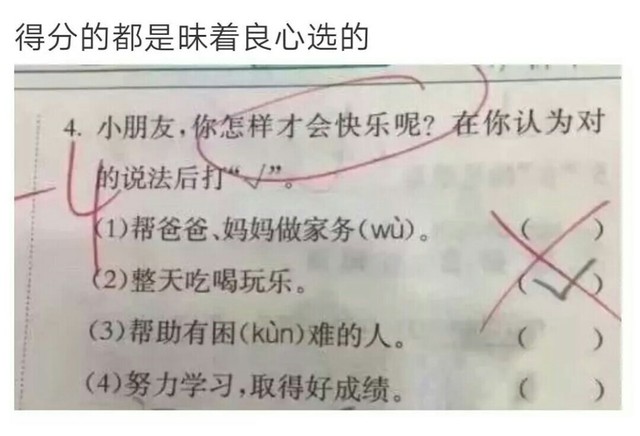 得分的都是昧着良心选的
4. 小朋友,你怎样才会快乐呢? 在你认为对
的说法后打“√”。
-4
(1)帮爸爸、妈妈做家务(wù)。 (    )
(2)整天吃喝玩乐。 ( √ )
(3)帮助有困(kùn)难的人。 (    )
(4)努力学习,取得好成绩。 (    )